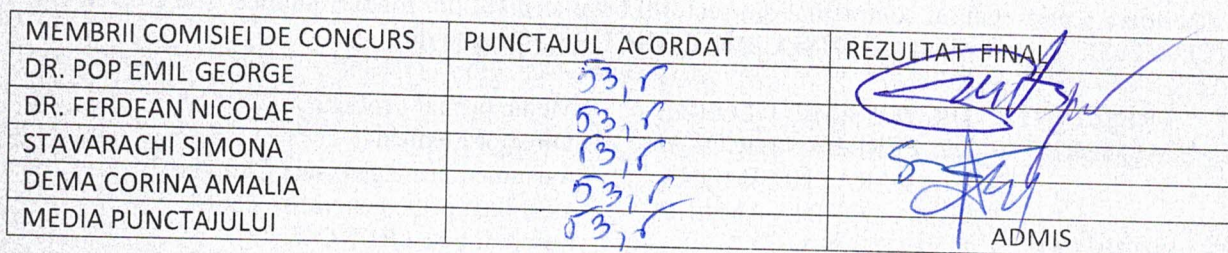 MEMBRII COMISIEI DE CONCURS PUNCTAJUL ACORDAT REZULTAT FINAL
DR. POP EMIL GEORGE 53,5
DR. FERDEAN NICOLAE 53,5
STAVARACHI SIMONA 53,5
DEMA CORINA AMALIA 53,5
MEDIA PUNCTAJULUI 53,5 ADMIS